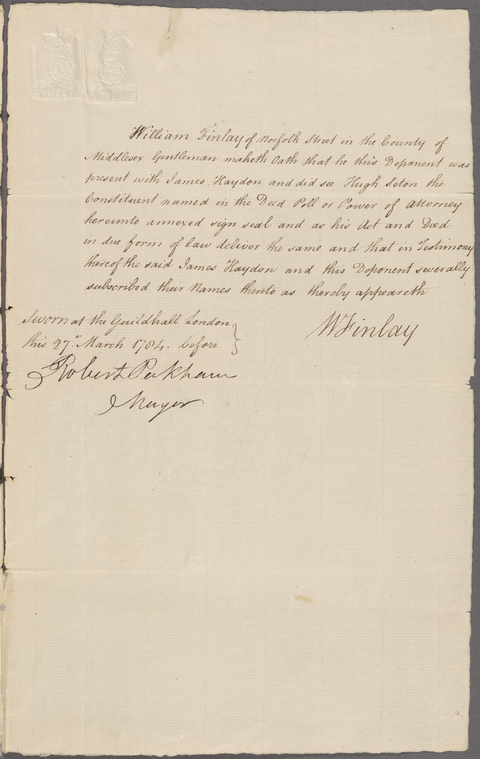 William Finlay of Norfolk Street in the County of
Middlesex Gentleman maketh Oath that he this Deponent was
present with James Haydon and did see Hugh Seton the
Constituent named in the Deed Poll or Power of Attorney
hereunto annexed sign seal and as his Act and Deed
in due form of law deliver the same and that in Testimony
thereof the said James Haydon and this Deponent severally
subscribed their Names thereto as thereby appeareth
Sworn at the Guildhall London
this 27th March 1784. before
WFinlay
Robert Peckham
Mayor